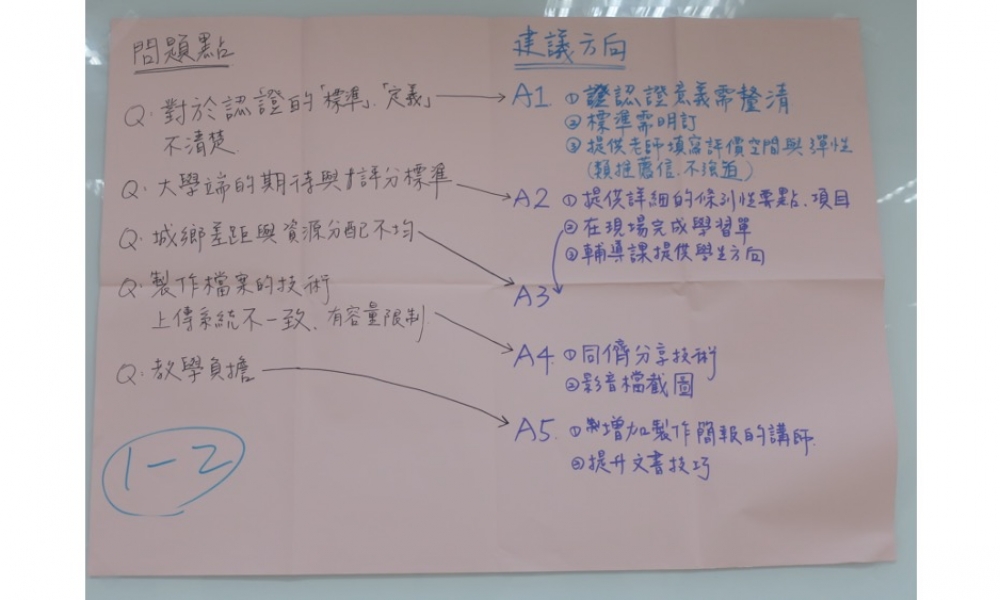 問題點
Q. 對於認證的「標準」、「定義」
不清楚.
Q. 大學端的期待與評分標準
Q. 城鄉差距與資源分配不均
Q. 製作檔案的技術
上傳系統不一致、有容量限制.
Q. 教學負擔
1-2
建議方向
A1 ①證認證意義需釐清
②標準需明訂
③提供老師填寫評價空間與彈性
(類推薦信.不強迫)
A2 ①提供詳細的條列性要點、項目
②在現場完成學習單
③輔導課提供學生方向
A3
A4. ①同儕分享技術
②影音檔截圖
A5. ①增加製作簡報的講師.
②提升文書技巧